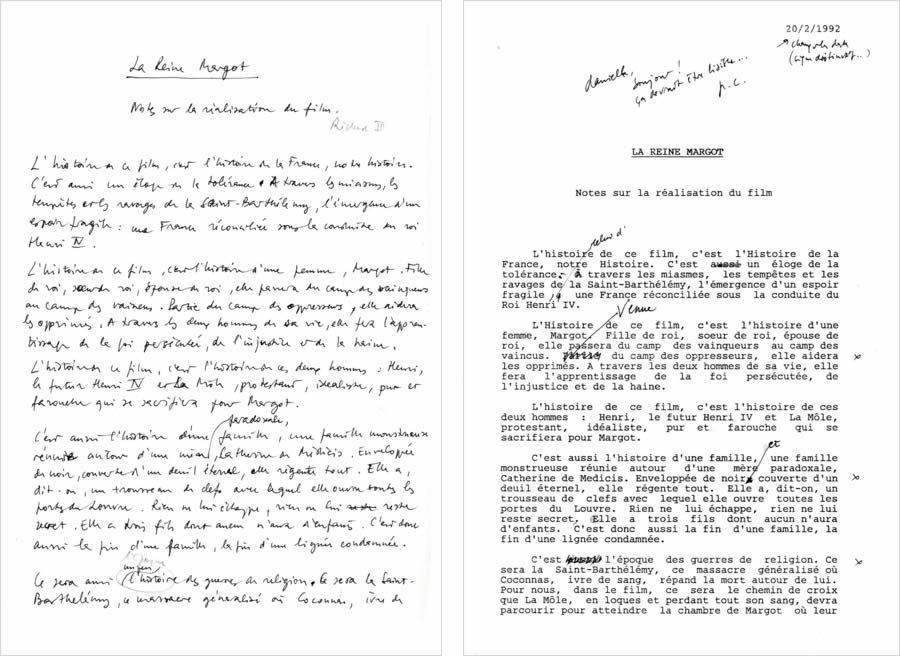 La Reine Margot
Notes sur la réalisation du film.
Richard III
L'histoire de ce film, c'est l'histoire de la France, notre histoire.
C'est aussi un éloge de la tolérance. A travers les miasmes, les
tempêtes et les ravages de la Saint-Barthélémy, l'émergence d'un
espoir fragile : une France réconciliée sous la conduite du roi
Henri IV.
L'histoire de ce film, c'est l'histoire d'une femme, Margot. Fille
de roi, soeur de roi, épouse de roi, elle passera du camp des vainqueurs
au camp des vaincus. Partie du camp des oppresseurs, elle aidera
les opprimés. A travers les deux hommes de sa vie, elle fera l'appren-
tissage de la foi persécutée, de l'injustice et de la haine.
L'histoire de ce film, c'est l'histoire de ces deux hommes : Henri,
le futur Henri IV et La Môle, protestant, idéaliste, pur et
farouche qui se sacrifiera pour Margot.
paradoxale,
C'est aussi l'histoire d'une famille, une famille monstrueuse
réunie autour d'une mère, Catherine de Médicis. Enveloppée
de noir, couverte d'un deuil éternel, elle régente tout. Elle a,
dit-on, un trousseau de clefs avec lequel elle ouvre toutes les
portes du Louvre. Rien ne lui échappe, rien ne lui reste
secret. Elle a trois fils dont aucun n'aura d'enfants. C'est donc
aussi la fin d'une famille, la fin d'une lignée condamnée.
Ce sera aussi l'histoire des guerres de religion. Ce sera la Saint-
Barthélémy, ce massacre généralisé où Coconnas, ivre de
20/2/1992
Danielle,
bonjour !
ça devrait être lisible...
p.c.
LA REINE MARGOT
Notes sur la réalisation du film
celui d'
L'histoire de ce film, c'est l'Histoire de la
France, notre Histoire. C'est aussi un éloge de la
tolérance. A travers les miasmes, les tempêtes et les
ravages de la Saint-Barthélémy, l'émergence d'un espoir
fragile, une France réconciliée sous la conduite du
Roi Henri IV.
Venue
L'Histoire de ce film, c'est l'histoire d'une
femme, Margot. Fille de roi, soeur de roi, épouse de
roi, elle passera du camp des vainqueurs au camp des
vaincus. du camp des oppresseurs, elle aidera
les opprimés. A travers les deux hommes de sa vie, elle
fera l'apprentissage de la foi persécutée, de
l'injustice et de la haine.
L'histoire de ce film, c'est l'histoire de ces
deux hommes : Henri, le futur Henri IV et La Môle,
protestant, idéaliste, pur et farouche qui se
sacrifiera pour Margot.
et
C'est aussi l'histoire d'une famille, une famille
monstrueuse réunie autour d'une mère paradoxale,
Catherine de Medicis. Enveloppée de noir, couverte d'un
deuil éternel, elle régente tout. Elle a, dit-on, un
trousseau de clefs avec lequel elle ouvre toutes les
portes du Louvre. Rien ne lui échappe, rien ne lui
reste secret, Elle a trois fils dont aucun n'aura
d'enfants. C'est donc aussi la fin d'une famille, la
fin d'une lignée condamnée.
C'est l'époque des guerres de religion. Ce
sera la Saint-Barthélémy, ce massacre généralisé où
Coconnas, ivre de sang, répand la mort autour de lui.
Pour nous, dans le film, ce sera le chemin de croix
que La Môle, en loques et perdant tout son sang, devra
parcourir pour atteindre la chambre de Margot où leur